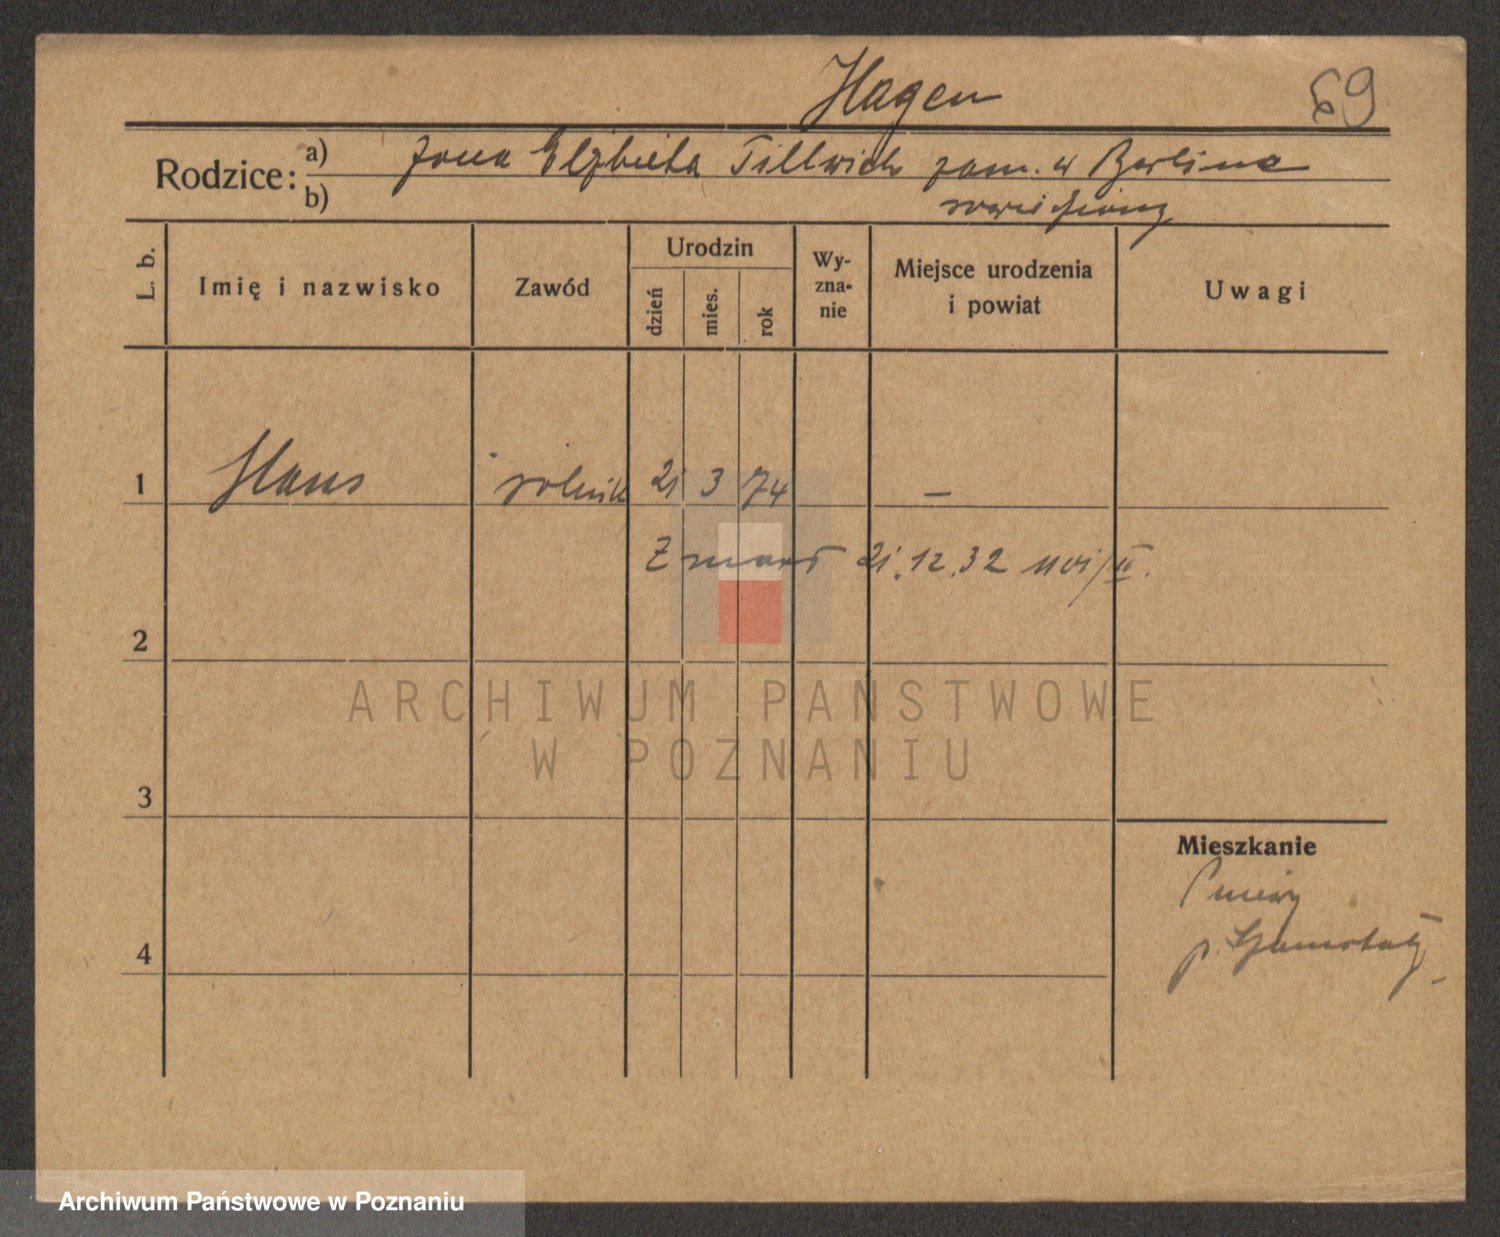 Hagen
69
Rodzice: a) żona Elżbieta Tillwich zam. w Berlinie
b)
L. b.
Imię i nazwisko
Zawód
Urodzin
dzień
mies.
rok
Wy-
zna-
nie
Miejsce urodzenia
i powiat
Uwagi
1 Hans rolnik 21 3 74 —
Zmarł 21.12.32
2
3
4
ARCHIWUM PAŃSTWOWE
W POZNANIU
Mieszkanie
Pniewy
p. Szamotuły
Archiwum Państwowe w Poznaniu